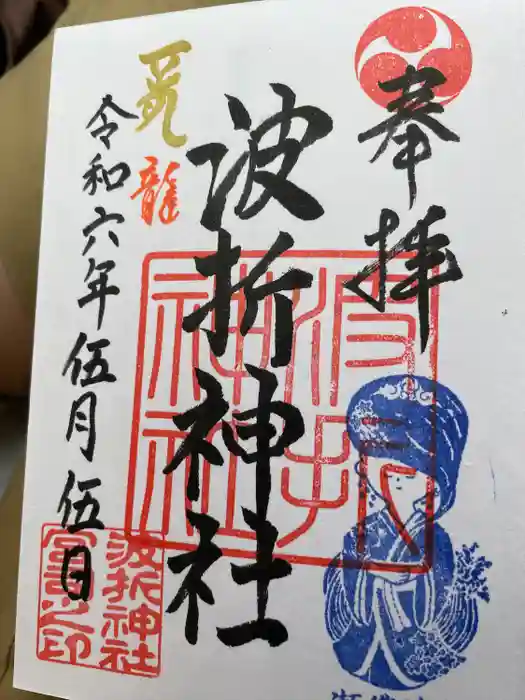 奉拝
波折神社
波折神社
龍
令和六年伍月伍日
波折神社
宮司之印